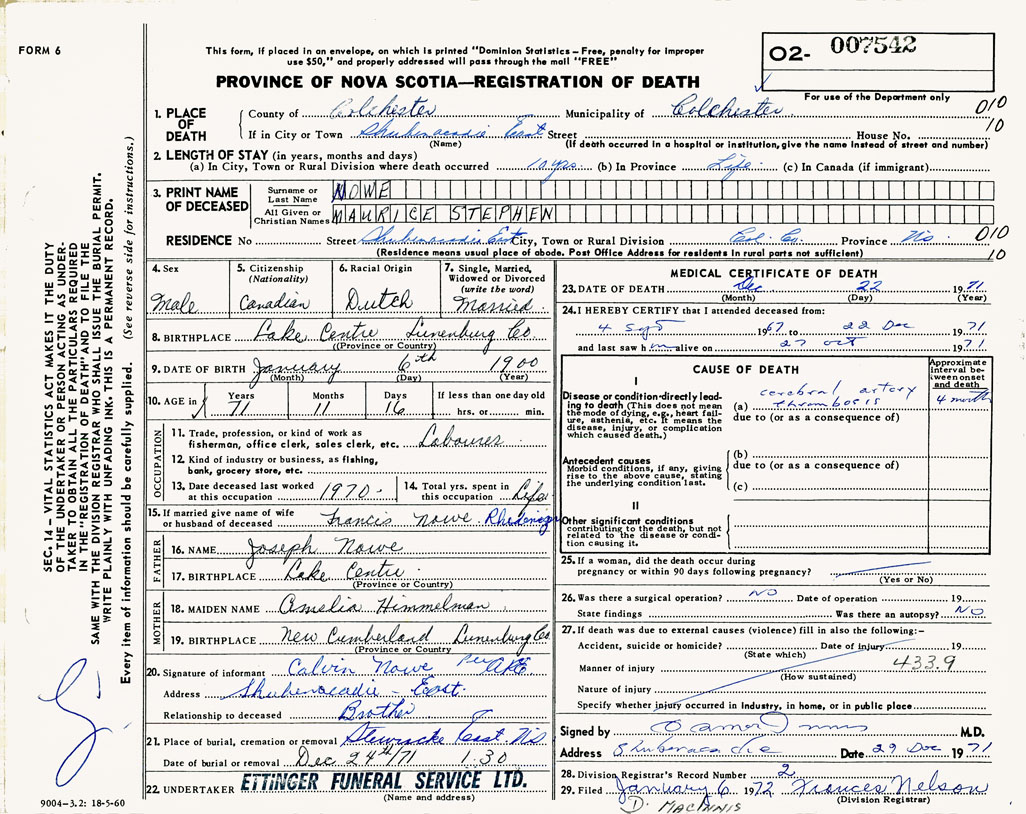 FORM 6
This form, if placed in an envelope, on which is printed "Dominion Statistics – Free, penalty for improper
use $50," and properly addressed will pass through the mail "FREE"
PROVINCE OF NOVA SCOTIA—REGISTRATION OF DEATH
O2- 007542
For use of the Department only
1. PLACE OF DEATH County of Colchester Municipality of Colchester 010
If in City or Town Shubenacadie East Street House No. 10
(Name) (If death occurred in a hospital or institution, give the name instead of street and number)
2. LENGTH OF STAY (in years, months and days)
(a) In City, Town or Rural Division where death occurred 10 yrs. (b) In Province Life (c) In Canada (if immigrant)
3. PRINT NAME OF DECEASED Surname or Last Name NOWE
All Given or Christian Names MAURICE STEPHEN
RESIDENCE No Street Shubenacadie East City, Town or Rural Division Col. Co. Province NS 010
(Residence means usual place of abode. Post Office Address for residents in rural parts not sufficient) 10
4. Sex Male
5. Citizenship (Nationality) Canadian
6. Racial Origin Dutch
7. Single, Married, Widowed or Divorced (write the word) Married
8. BIRTHPLACE Lake Centre Lunenburg Co.
(Province or Country)
9. DATE OF BIRTH January 6th 1900
(Month) (Day) (Year)
10. AGE in Years Months Days If less than one day old
71 11 16 hrs. or min.
OCCUPATION
11. Trade, profession, or kind of work as
fisherman, office clerk, sales clerk, etc. Labourer
12. Kind of industry or business, as fishing,
bank, grocery store, etc.
13. Date deceased last worked at this occupation 1970
14. Total yrs. spent in this occupation Life
15. If married give name of wife
or husband of deceased Francis Nowe
FATHER
16. NAME Joseph Nowe
17. BIRTHPLACE Lake Centre
(Province or Country)
MOTHER
18. MAIDEN NAME Amelia Himmelman
19. BIRTHPLACE New Cumberland Lunenburg Co
(Province or Country)
20. Signature of informant Calvin Nowe Per
Address Shubenacadie – East.
Relationship to deceased Brother
21. Place of burial, cremation or removal Stewiacke East NS
Date of burial or removal Dec 24th/71 1.30
22. UNDERTAKER ETTINGER FUNERAL SERVICE LTD.
(Name and address)
MEDICAL CERTIFICATE OF DEATH
23. DATE OF DEATH Dec 22 1971
(Month) (Day) (Year)
24. I HEREBY CERTIFY that I attended deceased from:
4 Sept 1967 to 22 Dec 1971
and last saw him alive on 27 Oct 1971
CAUSE OF DEATH
Approximate interval between onset and death
I
Disease or condition directly leading to death (This does not mean the mode of dying, e.g., heart failure, asthenia, etc. It means the disease, injury, or complication which caused death.)
(a) cerebral artery thrombosis 4 months
due to (or as a consequence of)
Antecedent causes
Morbid conditions, if any, giving rise to the above cause, stating the underlying condition last.
(b)
due to (or as a consequence of)
(c)
II
Other significant conditions
contributing to the death, but not related to the disease or condition causing it.
25. If a woman, did the death occur during
pregnancy or within 90 days following pregnancy?
(Yes or No)
26. Was there a surgical operation? NO Date of operation 19
State findings Was there an autopsy? NO
27. If death was due to external causes (violence) fill in also the following:–
Accident, suicide or homicide? Date of injury 19
(State which) 433.9
Manner of injury
(How sustained)
Nature of injury
Specify whether injury occurred in industry, in home, or in public place
Signed by M.D.
Address Shubenacadie Date 29 Dec 1971
28. Division Registrar's Record Number 2
29. Filed January 6 1972 Frances Nelson
(Division Registrar)
D. MacInnis
SEC. 14 – VITAL STATISTICS ACT MAKES IT THE DUTY
OF THE UNDERTAKER OR PERSON ACTING AS UNDER-
TAKER TO OBTAIN ALL THE PARTICULARS REQUIRED
IN THE "REGISTRATION OF DEATH" AND TO FILE THE
SAME WITH THE DIVISION REGISTRAR WHO SHALL ISSUE THE BURIAL PERMIT.
WRITE PLAINLY WITH UNFADING INK. THIS IS A PERMANENT RECORD.
Every item of information should be carefully supplied. (See reverse side for instructions.)
9004–3.2: 18-5-60